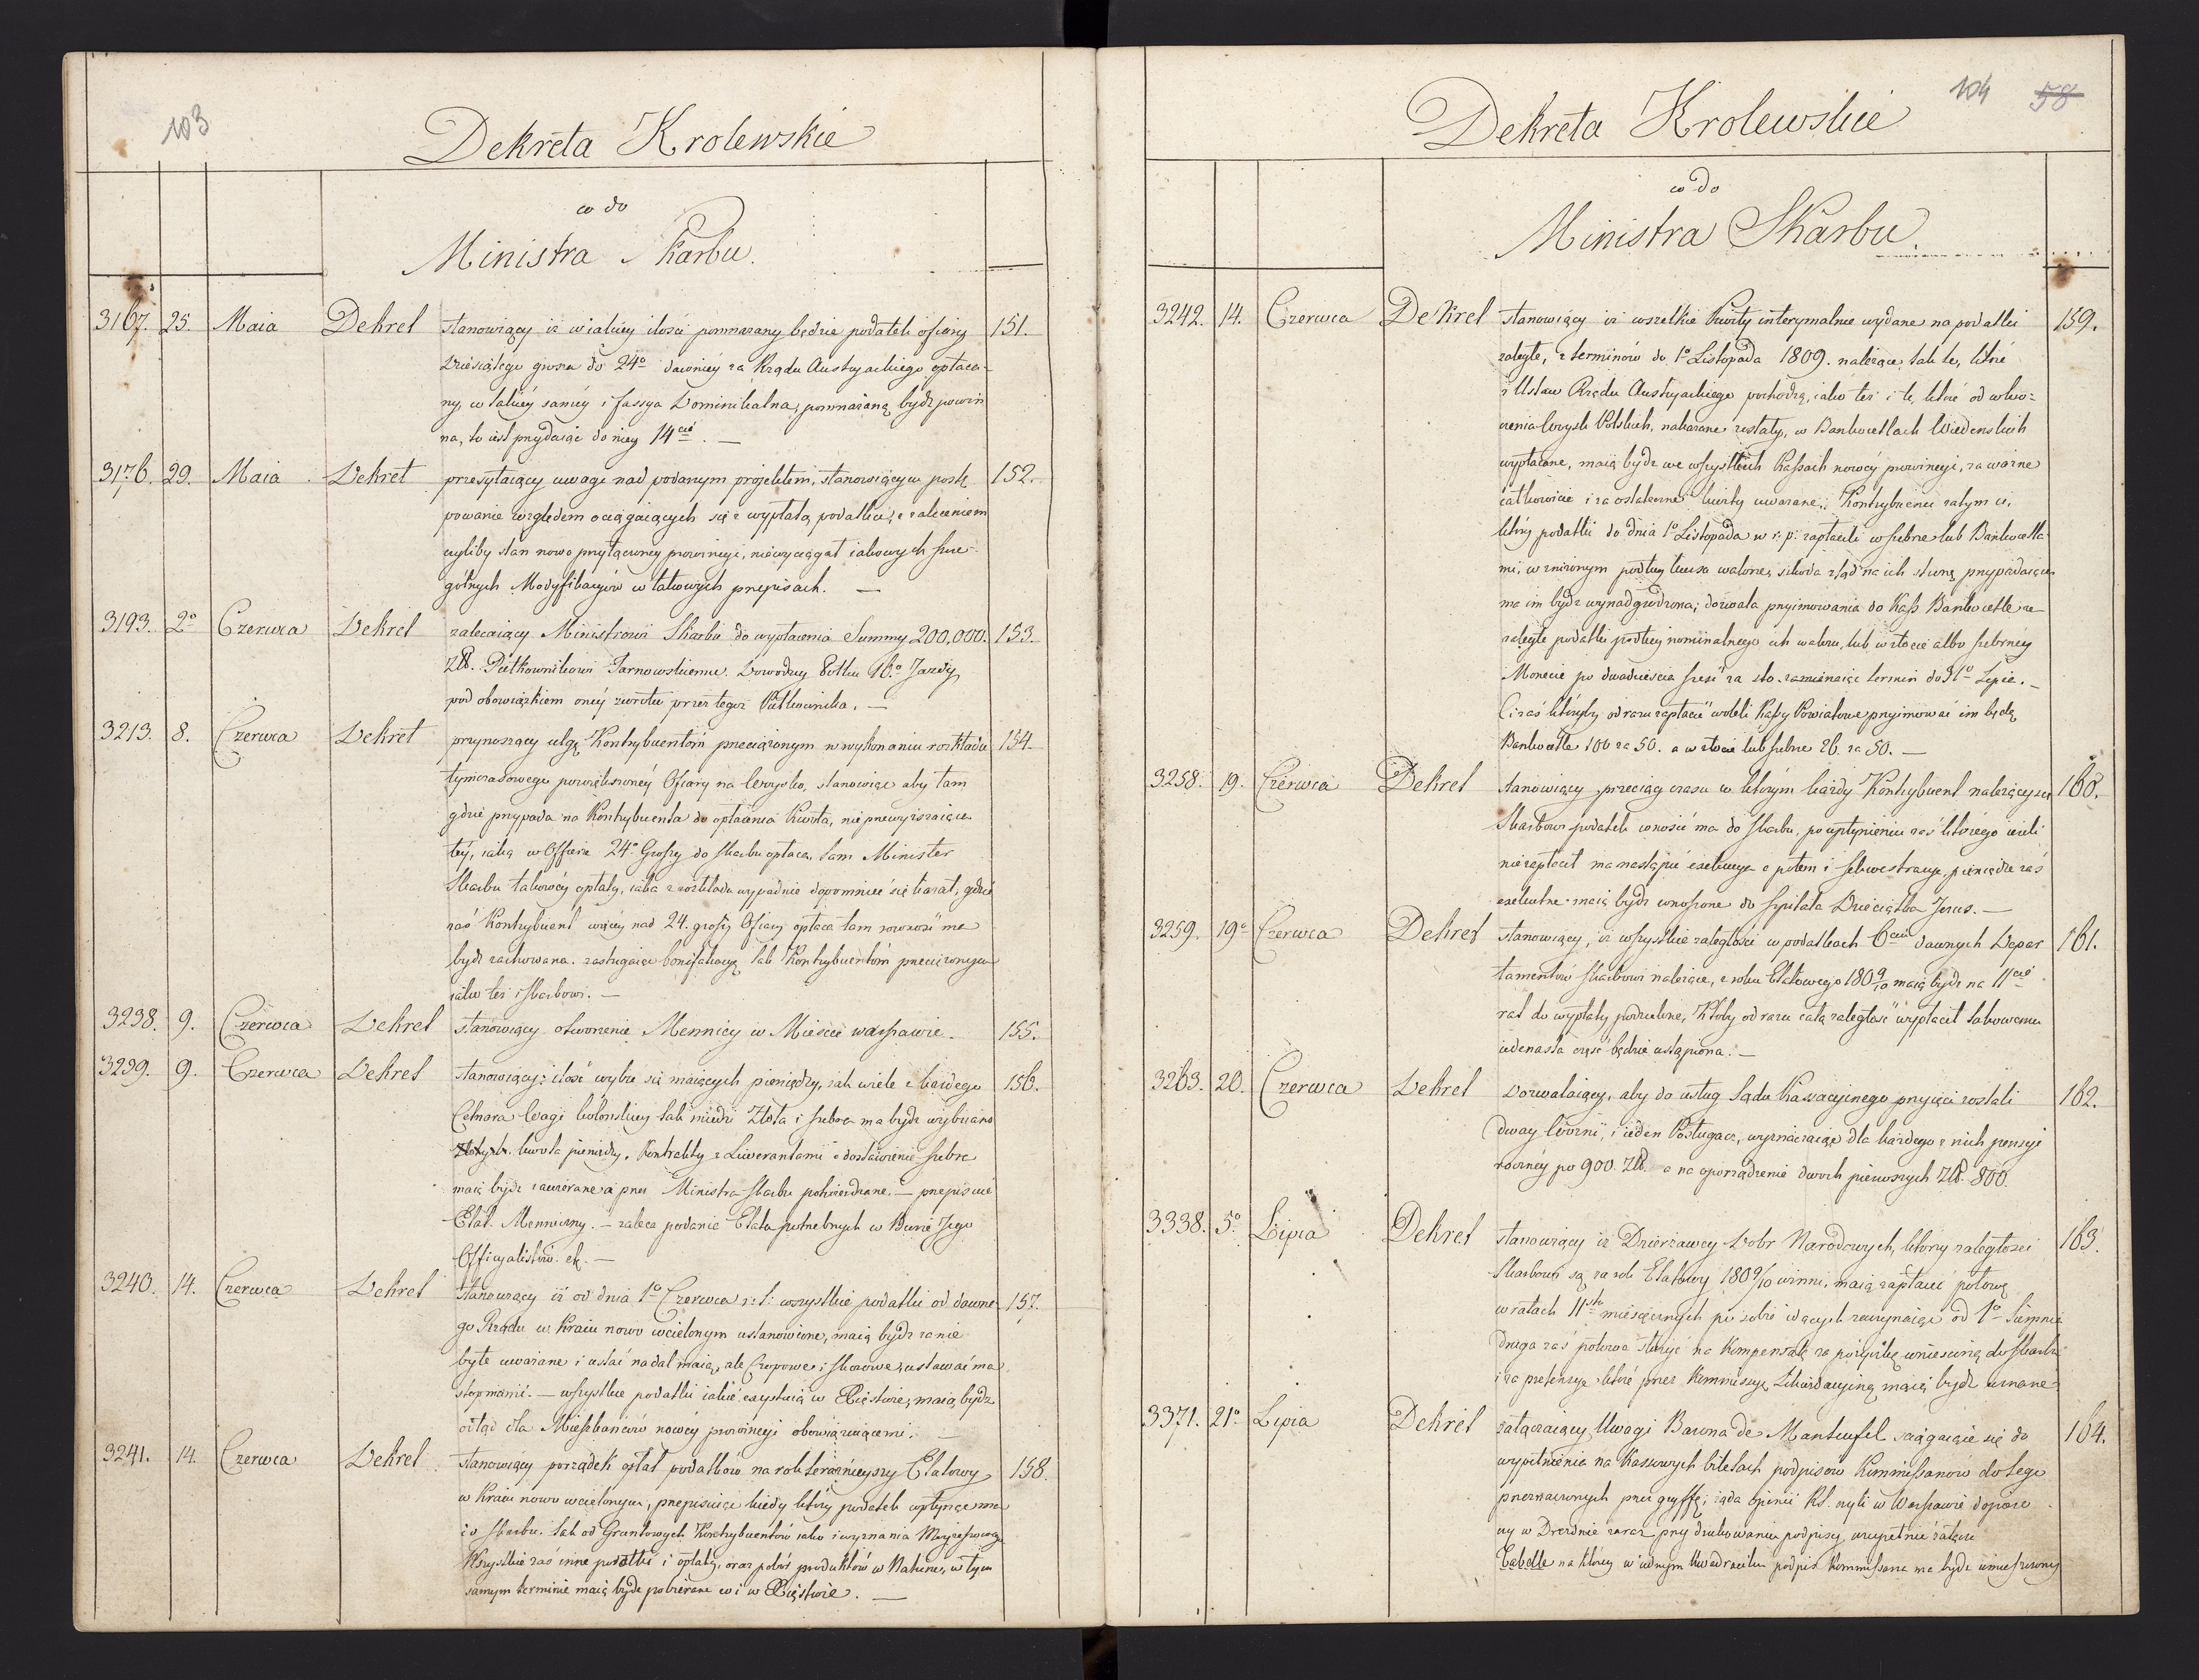 103
Dekreta Krolewskie
co do
Ministra Skarbu.
3167. 25. Maia Dekret stanowiący iż w iakiey ilości pomnażany będzie podatek ofiary 151.
dziesiątego grosza do 24º dawniey za Rządu Austryackiego opłaca-
ny, w takiéy saméy i fassya Dominikalna, pomnażaną bydź powin
na, to iest przydaiąc do niey 14
3176. 29. Maia Dekret przesyłaiący uwagi nad podanym projektem, stanowiącym postę 152.
powanie względem ociągaiących się z wypłatą podatku, z zaleceniem
czyliby stan nowo przyłączoney prowincyi, niewyciągał iakowych szcze-
gólnych Modyfikacyów w takowych przepisach. —
3193. 2º Czerwca Dekret zalecaiący Ministrowi Skarbu do wypłacenia Summy 200,000. 153.
Zł. Pułkownikowi Tarnowskiemu. Dowodzcy Pułku 16º Jazdy,
pod obowiązkiem onéy zwrotu przez tegoż Pułkownika. —
3213. 8. Czerwca Dekret przynoszący ulgę Kontrybuentóm przeciążonym w wykonaniu rozkładu 154.
tymczasowego powiększonéy Ofiary na Woysko, stanowiąc aby tam
gdzie przypada na Kontrybuenta do opłacenia Kwota, nieprzewyższaiąca
téy, iaką w Offierze 24º Groszy do skarbu opłaca, tam Minister
Skarbu takowéy opłaty, iaka z rozkładu wypadnie dopomnieć się kazał, gdzie
zaś Kontrybuent więcéy nad 24. groszy Ofiary opłaca tam rowność ma
bydź zachowana. bonifikacyą tak Kontrybuentóm przeciążonym
iako też i skarbowi. —
3238. 9. Czerwca Dekret stanowiący otworzenie Mennicy w Miescie warszawie. 155.
3239. 9. Czerwca Dekret stanowiący: ilość wybic się maiących pieniędzy, iak wiele z każdego 156.
Cetnara Wagi kolonskiey tak miedzi Złota i srebra ma bydź wybiiano
kwota pieniędzy. Kontrakty z Liwerantami o dostawienie srebra
maią bydź zawierane a przez Ministra skarbu potwierdzane. — przepisuie
Etat. Menniczny. — zaleca podanie Etatu potrzebnych w Biurze Jego
Officyalistów. etc. —
3240. 14. Czerwca Dekret stanowiący iż od dnia 1º Czerwca r: t: wszystkie podatki od dawne- 157.
go Rządu w Kraiu nowo wcielonym ustanowione, maią bydź za nie
byłe uważane i ustać nadal maią, ale Czopowe i skorowe, ustawać ma
stopmanié. — wszystkie podatki iakie exystuią w Xięstwie, maią bydz
odtąd dla Mieszkańców nowéy prowincyi obowiązuiącemi. —
3241. 14. Czerwca Dekret stanowiący porządek opłat podatków na rok teraznieyszy Etatowy 158.
w Kraiu nowo wcielonym, przepisuiąc kiedy który podatek wpłynąć ma
do skarbu. tak od Gruntowych Kontrybuentów iako i wyznania Moyżeszowego
Wszystkie zaś inne podatki i opłaty, oraz pobór produktów w Naturze, w tym
samym terminie maią bydz pobierane co i w Xięstwie. —
104 58
Dekreta Krolewskie
co do
Ministra Skarbu.
3242. 14. Czerwca Dekret stanowiący iż wszelkie Kwity interymalne wydane na podatki 159.
zaległe, z terminów do 1º Listopada 1809. należące, tak te, które
z Ustaw Rządu Austryackiego pochodzą, iako też i te, które od wkro-
czenia Woysk Polskich, nakazane zostały, w Bankocetlach Wiedenskich
wypłacone, maią bydz we wszystkich Kassach nowéy prowincyi, za ważne
całkowicie i za ostateczne kwity uważane. Kontrybuenci zatym ci,
którzy podatki do dnia 1º Listopada w r: p: zapłacili w srebrze lub Bankocetla-
mi, w zniżonym podług kursu walorze, szkoda ztąd na ich stronę przypadaiąca
ma im bydz wynadgrodzona; dozwala przyimowania do Kass Bankocetle za
zaległe podatki podług nominalnego ich waloru, lub w złocie albo srebrnéy
Monecie po dwadzieścia sześć za sto. zamieniaiąc termin do 31º Lipca. —
Ci zaś którzyby od razu zapłacić woleli Kassy Powiatowe przyimować im będą
Bankocetle 100 za 50. a w złocie lub srebrze 26. za 50. —
3258. 19. Czerwca Dekret stanowiący przeciąg czasu w którym każdy Kontrybuent należący się 160.
Skarbowi podatek wnosić ma do skarbu, po upłynieniu zaś którego ieżeli
niezapłacił ma nastąpić exekucya a potem i sekwestracya, pieniądze zaś
exekutne maią bydź wnoszone do szpitala Dzieciątka Jezus. —
3259. 19º Czerwca Dekret stanowiący, iż wszystkie zaległości w podatkach 6ciu dawnych Depar 161.
tamentów skarbowi należące, z roku Etatowego 1809/10 maią bydz na 11
rat do wypłaty podzielone, Ktoby od razu całą zaległość wypłacił takowemu
iedenasta część będzie ustąpiona. —
3263. 20. Czerwca Dekret Dozwalaiący, aby do usług Sądu Kassacyinego przyięci zostali 162.
dway Woźni, i ieden Posługacz, wyznaczaiąc dla każdego z nich pensyi
rocznéy po 900. Zł. a na oporządzenie dwoch pierwszych Zł. 800.
3338. 5º Lipca Dekret stanowiący iż Dzierżawcy Dobr Narodowych, którzy zaległości 163.
Skarbowi są za rok Etatowy 1809/10 winni, maią zapłacić połowę
w ratach 11stu miesięcznych po sobie idących zaczynaiąc od 1º
Druga zaś połowa służyć na Kompensatę za pożyczkę wniesioną do skarbu
i za pretensye które przez Kommissyę Likwidacyiną maią bydz uznane.
3371. 21º Lipca Dekret załączaiący Uwagi Barona de Manteufel sciągaiące się do 164.
wypełnienia na Kassowych biletach podpisów Kommissarzów do tego
przeznaczonych przez gryffę; żąda opinii Rd. czyli w Warszawie dopiero
czy w Dreznie zaraz przy drukowaniu podpisy, uzupełnić załącza
Tabelle na którey w iednym Kwadraciku podpis Kommissarza ma bydz umieszczony